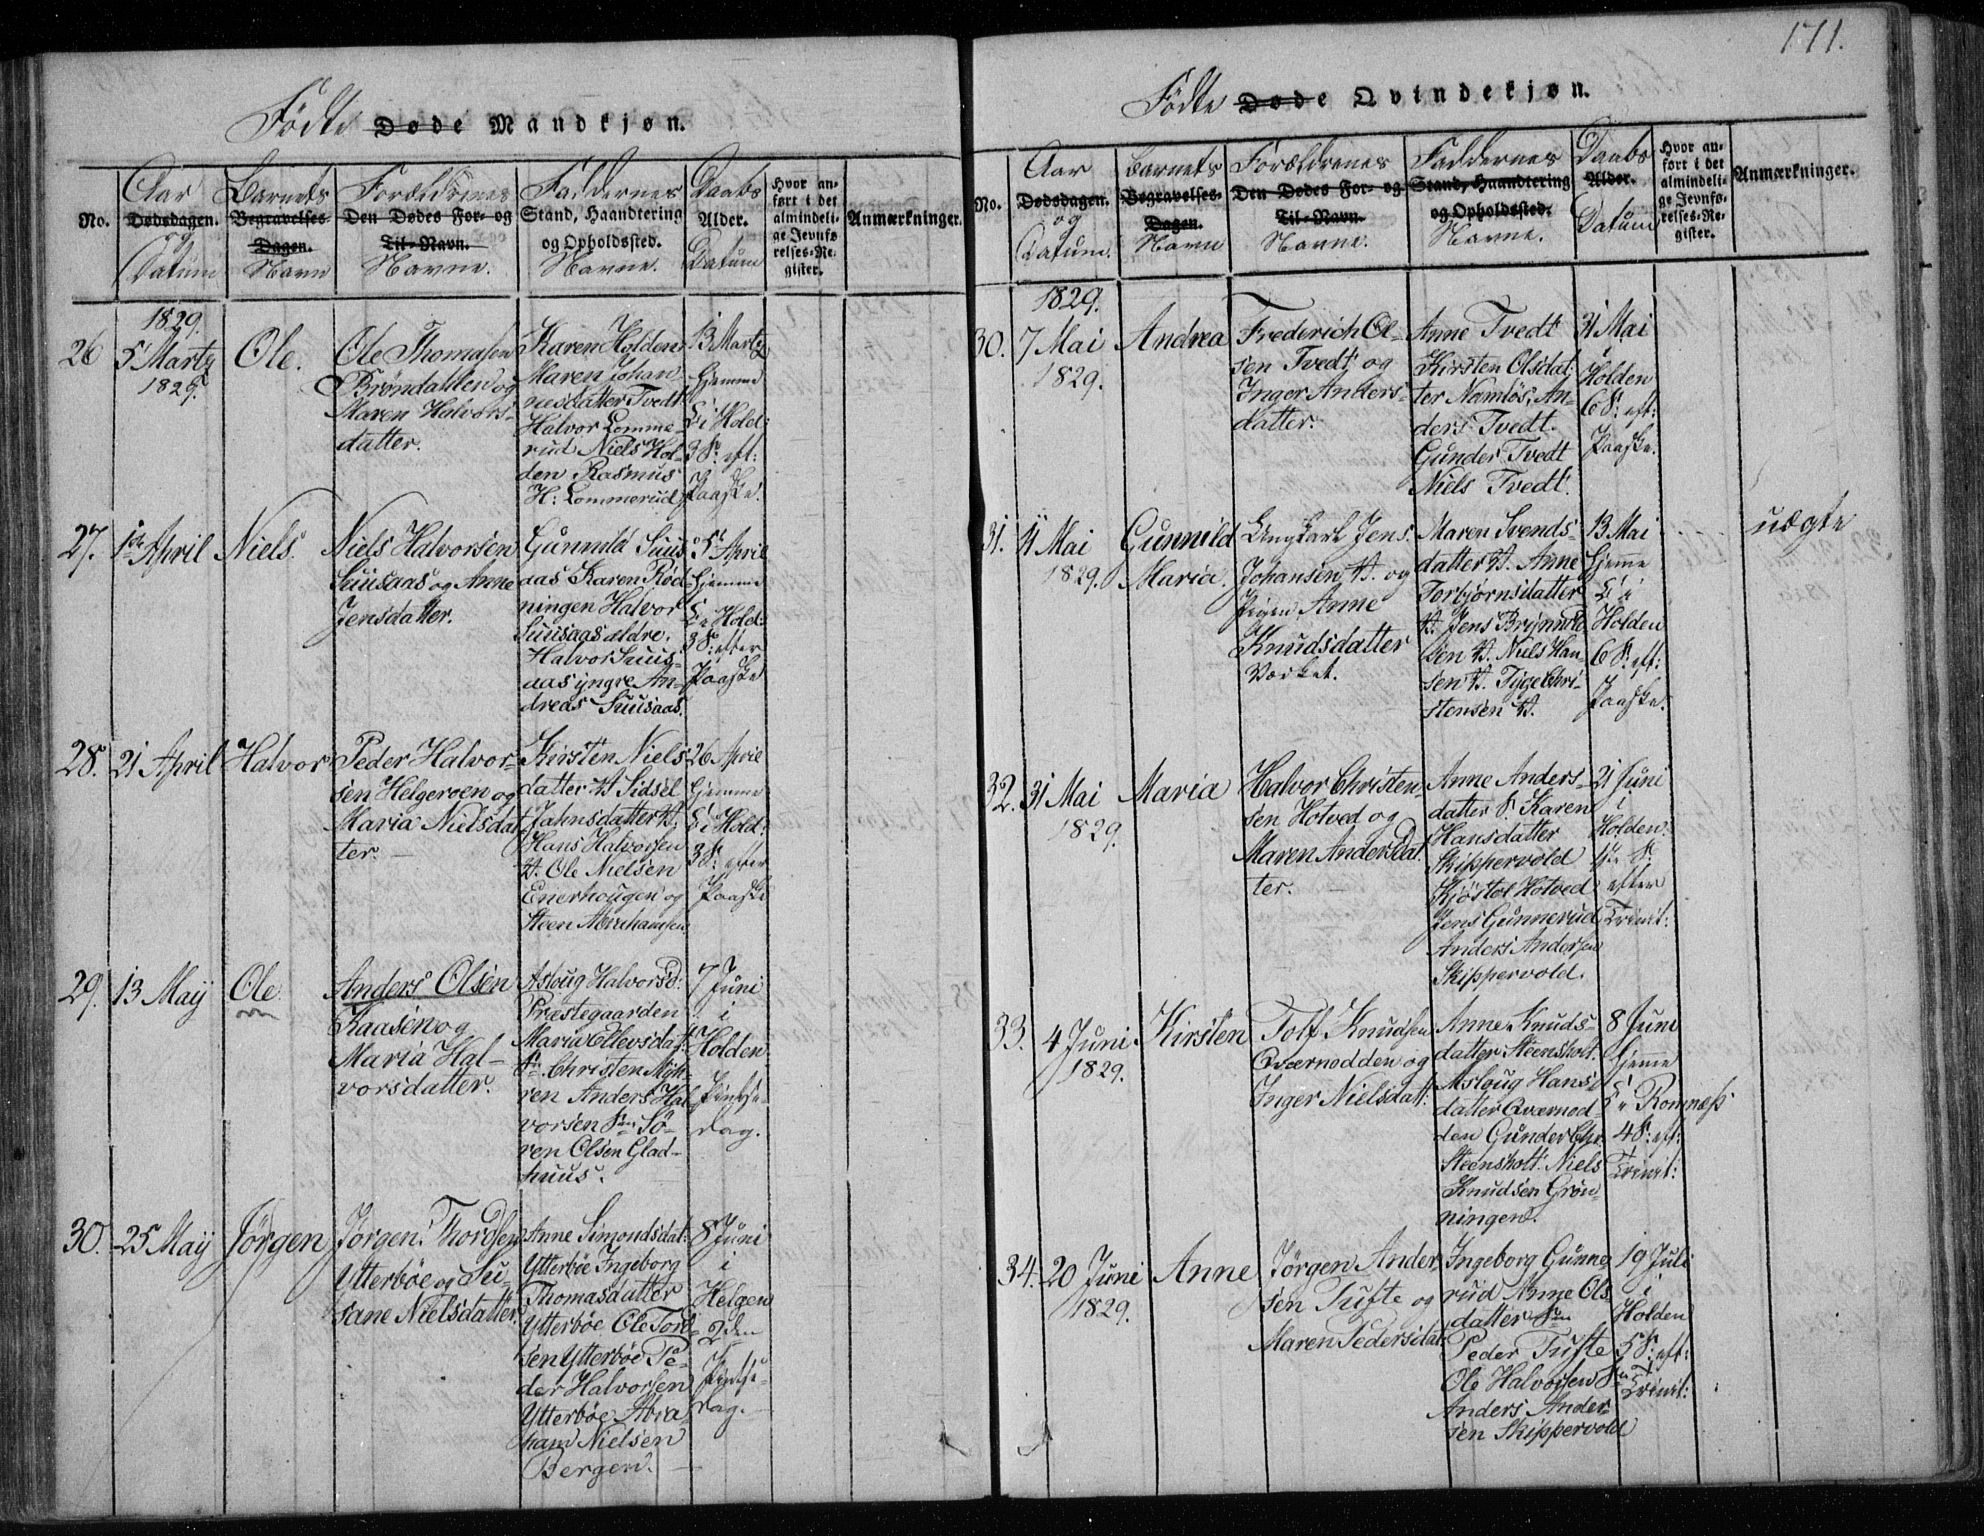 171.
Födte Døde Mandkjøn.
No.
Aar
Dødsdagen.
og
Datum
Barnets
Begravelses
Dagen.
Navn
Forældrenes
Den Dødes For- og
Til-Navn.
Navne.
Faddernes
Stand, Haandtering
og Opholdssted.
Navne.
Daabs
Alder.
Datum
Hvor an-
ført i det
almindeli-
ge Jevnfø
relses-Re-
gister.
Anmærkninger.
26
1829.
5 Marty
1829.
Ole.
Ole Thomasen
Brøndahlen og
Maren Halvors-
datter.
Karen Holden
Maren Johan-
nesdatter Tvedt
Halvor Lomme-
rud Niels Hol-
den Rasmus
H: Lommerud
13 Marty
hjemme
i Hold:
3 S: eft:
Paaske.
27.
1ste April
Niels.
Niels Halvorsen
Suusaas og Anne
Jensdatter.
Gunnild Suus
aas Karen Rød-
ningen Halvor
Suusaas ældre.
Halvor Suus-
aas yngre An-
dreas Suusaas.
5te April
hjemme
i Hold:
3 S: efter
Paaske
28.
21 April
Halvor
Peder Halvor-
sen Helgeroen og
Maria Nielsdat
ter.
Kirsten Niels
datter V. Sidsel
Jahnsdatter V.
Hans Halvorsen
V. Ole Nielsen
Enerhougen og
Steen Abrahamsen
26 April
hjemme
i Hold:
3 S: efter
Paaske
29.
13 Maij
Ole
Anders Olsen
Kaasen og
Maria Hal-
vorsdatter.
Asloug Halvorsd:
Præstegaarden
Maria Ellevsdat:
Christen Myh-
ren Anders Hal
vorsen Sö-
ren Olsen Glad-
huus.
7 Juni
i
Holden
Pintse-
dag.
30.
25 Maij
Jørgen
Jørgen Thordsen
Ytterböe og Su-
sane Nielsdatter
Anne Simonsdat:
Ytterböe Ingeborg
Thomasdatter
Ytterböe Ole Tord
sen Ytterböe Pe-
der Halvorsen
Ytterböe Abra-
ham Nielsen
Bergen.
8 Juni
i
Helgen
2den
Pintse-
dag.
Födte Døde Qvindekjøn.
No.
Aar
Dødsdagen.
og
Datum.
Barnets
Begravelses-
Dagen.
Navn
Forældrenes
Den Dødes For- og
Til-Navn.
Navne.
Faddernes
Stand, Haandtering
og Opholdssted.
Navne.
Daabs
Alder.
Datum
Hvor an-
ført i det
almindeli-
ge Jevnfø-
relses-Re-
gister.
Anmærkninger.
30.
1829.
7 Mai
1829.
Andrea
Frederich Ol-
sen Tvedt og
Inger Anders-
datter.
Anne Tvedt
Kirsten Olsdat
ter Namløs, An-
ders Tvedt.
Gunder Tvedt
Niels Tvedt.
31 Mai
i
Holden
6 S: eft:
Paaske.
31.
11 Mai
1829.
Gunnild
Maria.
Ungkarl Jens
Johansen V. og
Pigen Anne
Knudsdatter
Værket.
Maren Svends-
datter V. Anne
Torbjørnsdatter
V. Jens Brynild
sen V. Niels Han-
sen V. Tyge Chri-
stensen V.
13 Mai
hjemme
i
Holden
6 S: eft:
Paaske.
uægte
32.
31 Mai
1829.
Maria
Halvor Christen-
sen Hotved og
Maren Andersdat
ter.
Anne Anders-
datter S. Karen
Hansdatter
Skippervold
Kjöstol Hotved
Jens Gunnerud
Anders Andersen
Skippervold.
21 Juni
i
Holden.
1ste S:
efter
Trinit:
33.
4 Juni
1829.
Kirsten
Tolf Knudsen
Qværnodden og
Inger Nielsdat:
Anne Knuds-
datter Steensholt.
Asloug Hans-
datter Qværnod-
den Gunder Chr.
Steensholt. Niels
Knudsen Grön-
ningen.
8 Juni
hjemme
i Romnæss
4 S: eft:
Trinit:
34.
20 Juni
1829.
Anne
Jörgen Ander
sen Tufte og
Maren Pedersdat:
Ingeborg Gunne-
rud Anne Ols-
datter
Peder Tufte
Ole Halvorsen
Anders Ander-
sen Skippervold
19 Juli
i
Holden
5 S: eft:
Trinit: